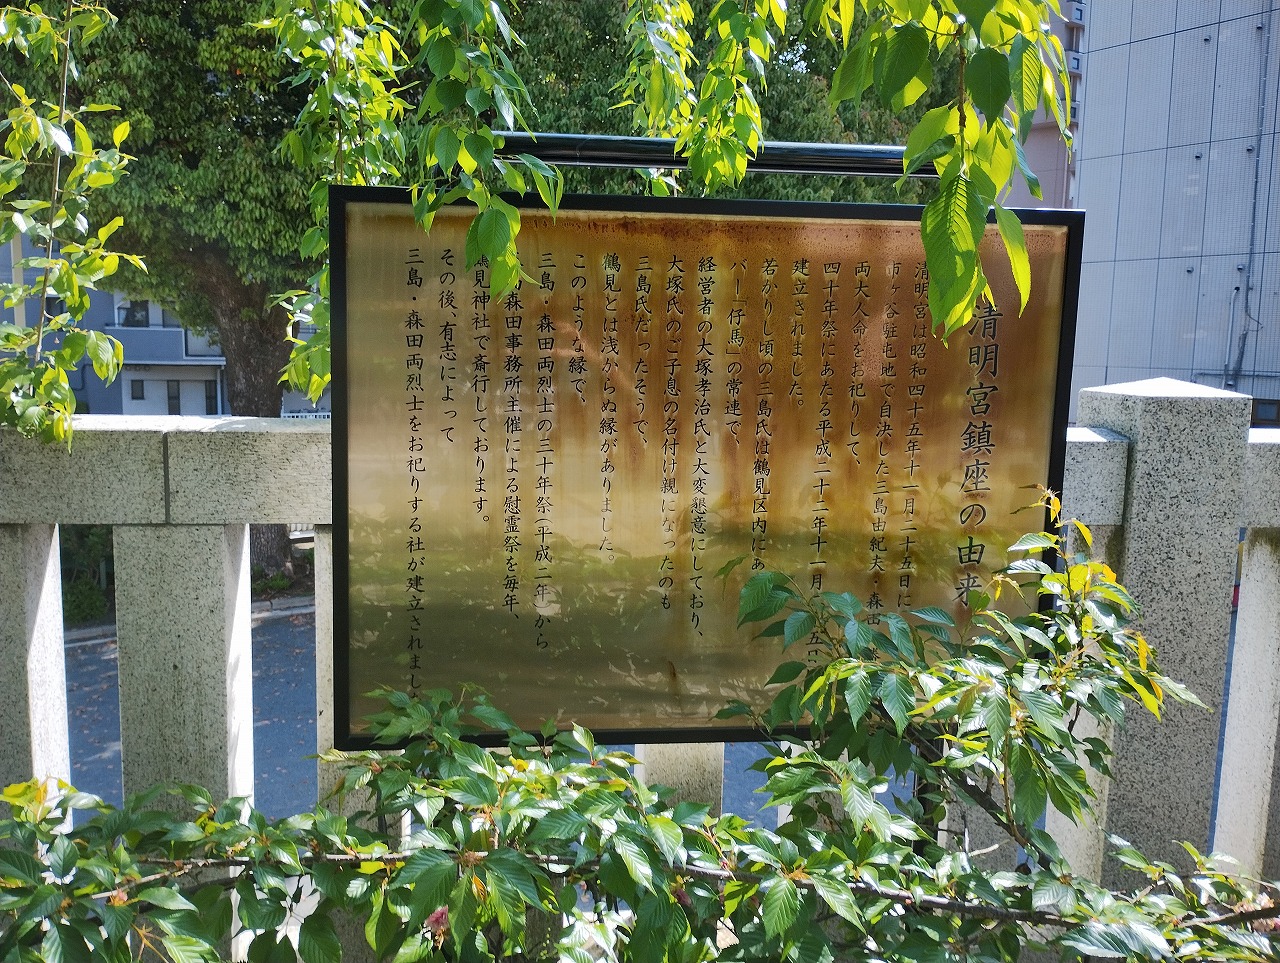 清明宮鎮座の由来
清明宮は昭和四十五年十一月二十五日に
市ヶ谷駐屯地で自決した三島由紀夫・森田
両大人命をお祀りして、
四十年祭にあたる平成二十二年十一月
建立されました。
若かりし頃の三島氏は鶴見区内にあ
バー「仔馬」の常連で、
経営者の大塚孝治氏と大変懇意にしており、
大塚氏のご子息の名付け親になったのも
三島氏だったそうで、
鶴見とは浅からぬ縁がありました。
このような縁で、
三島・森田両烈士の三十年祭(平成二年)から
森田事務所主催による慰霊祭を毎年、
鶴見神社で斎行しております。
その後、有志によって
三島・森田両烈士をお祀りする社が建立されました